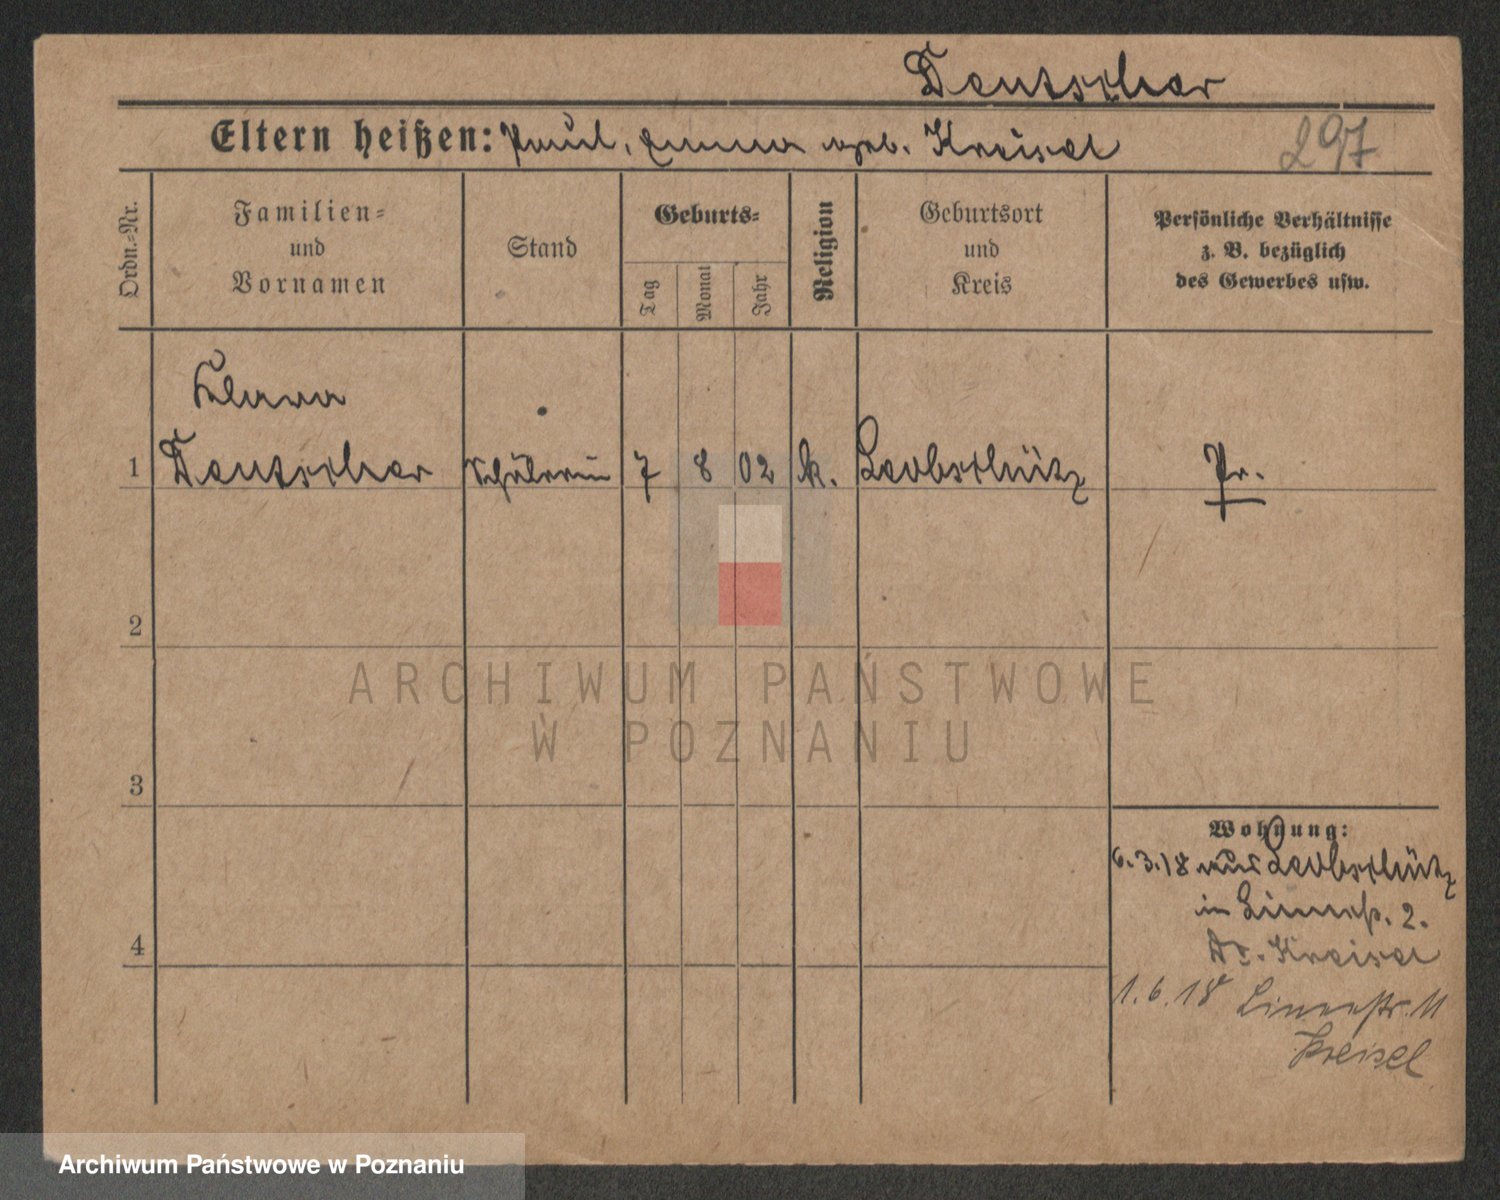 Deutscher
Eltern heißen: Paul, Emma geb. Kreisel 297
Ordn.-Nr.
Familien-
und
Vornamen
Stand
Geburts-
Tag
Monat
Jahr
Religion
Geburtsort
und
Kreis
Persönliche Verhältnisse
z. B. bezüglich
des Gewerbes usw.
Klara
1 Deutscher Schülerin 7 8 02 k. Leobschütz Pr.
2
3
4
Wohnung:
6.3.18 aus Leobschütz
in 2.
Kreisel
1.6.18 11
Kreisel
ARCHIWUM PAŃSTWOWE
W POZNANIU
Archiwum Państwowe w Poznaniu